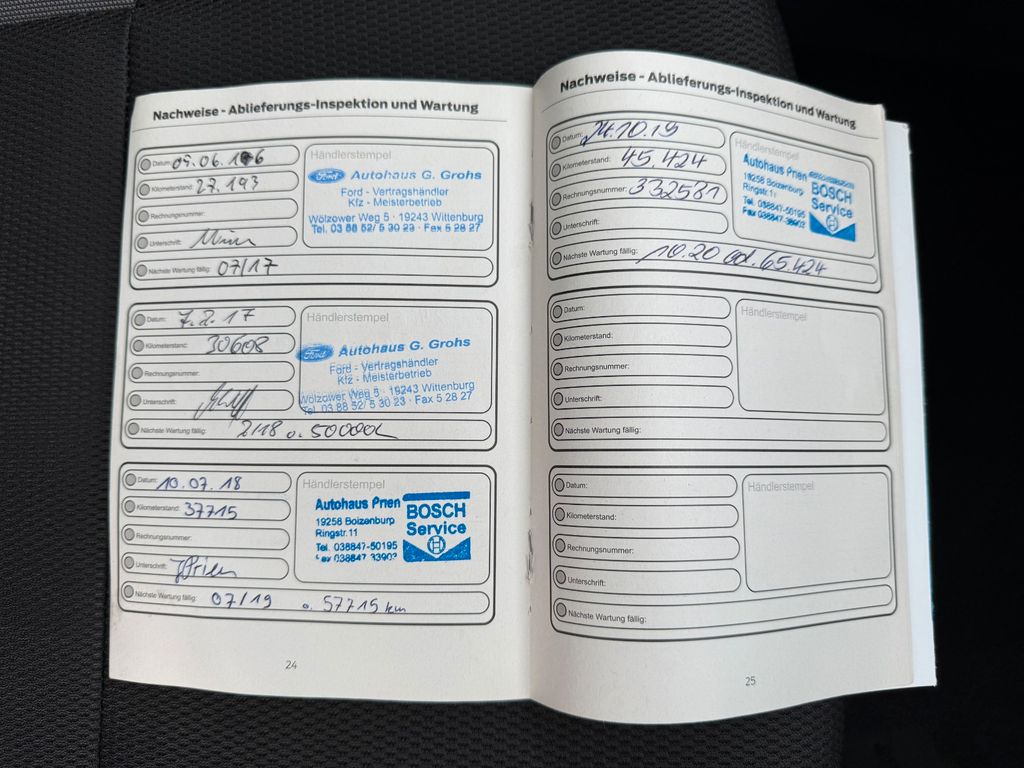 Nachweise - Ablieferungs-Inspektion und Wartung
Datum: 09.06.16
Händlerstempel
Kilometerstand: 27.193
Rechnungsnummer:
Unterschrift:
Nächste Wartung fällig: 07/17
Ford Autohaus G. Grohs
Ford - Vertragshändler
Kfz - Meisterbetrieb
Wölzower Weg 5 · 19243 Wittenburg
Tel. 03 88 52/ 5 30 23 · Fax 5 28 27
Datum: 7.2.17
Händlerstempel
Kilometerstand: 30608
Rechnungsnummer:
Unterschrift:
Nächste Wartung fällig: 2118 o. 50000
Ford Autohaus G. Grohs
Ford - Vertragshändler
Kfz - Meisterbetrieb
Wölzower Weg 5 · 19243 Wittenburg
Tel. 03 88 52/ 5 30 23 · Fax 5 28 27
Datum: 10.07.18
Händlerstempel
Kilometerstand: 37715
Rechnungsnummer:
Unterschrift: Prien
Nächste Wartung fällig: 07/19 o. 57715 km
Autohaus Prien
19258 Boizenburg
Ringstr. 11
Tel. 038847-50195
Fax 038847 33903
BOSCH
Service
24
Nachweise - Ablieferungs-Inspektion und Wartung
Datum: 24.10.19
Händlerstempel
Kilometerstand: 45.424
Rechnungsnummer: 332581
Unterschrift:
Nächste Wartung fällig: 10.20 od. 65.424
Autohaus Prien
19258 Boizenburg
Ringstr. 11
Tel. 038847-50195
Fax 038847-33903
BOSCH
Service
Datum:
Händlerstempel
Kilometerstand:
Rechnungsnummer:
Unterschrift:
Nächste Wartung fällig:
Datum:
Händlerstempel
Kilometerstand:
Rechnungsnummer:
Unterschrift:
Nächste Wartung fällig:
25